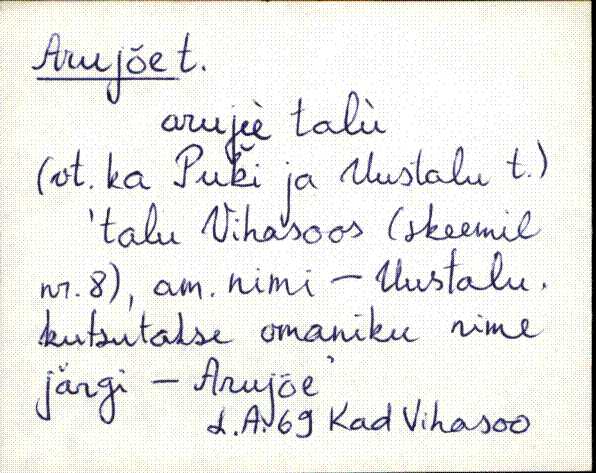 Arujõe t.
arujè talù
(vt. ka Puki ja Uustalu t.)
'talu Vihasoos (skeemil
nr. 8), am. nimi – Uustalu.
kutsutakse omaniku nime
järgi – Arujõe'
L.A. 69 Kad Vihasoo